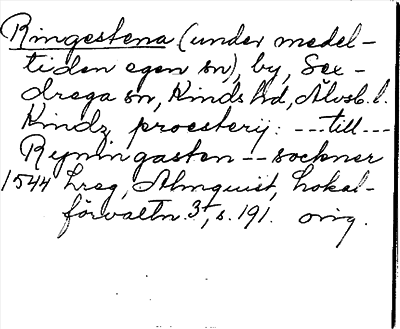 Ringestena (under medel-
tiden egen sn), by, Sex-
drega sn, Kinds hd, Älvsb. l.
Kindz proesterij: ---till---
Rijningasten -- sockner
1544 hrag, Almquist, Lokal-
förvaltn. 3¹, s. 191. orig.